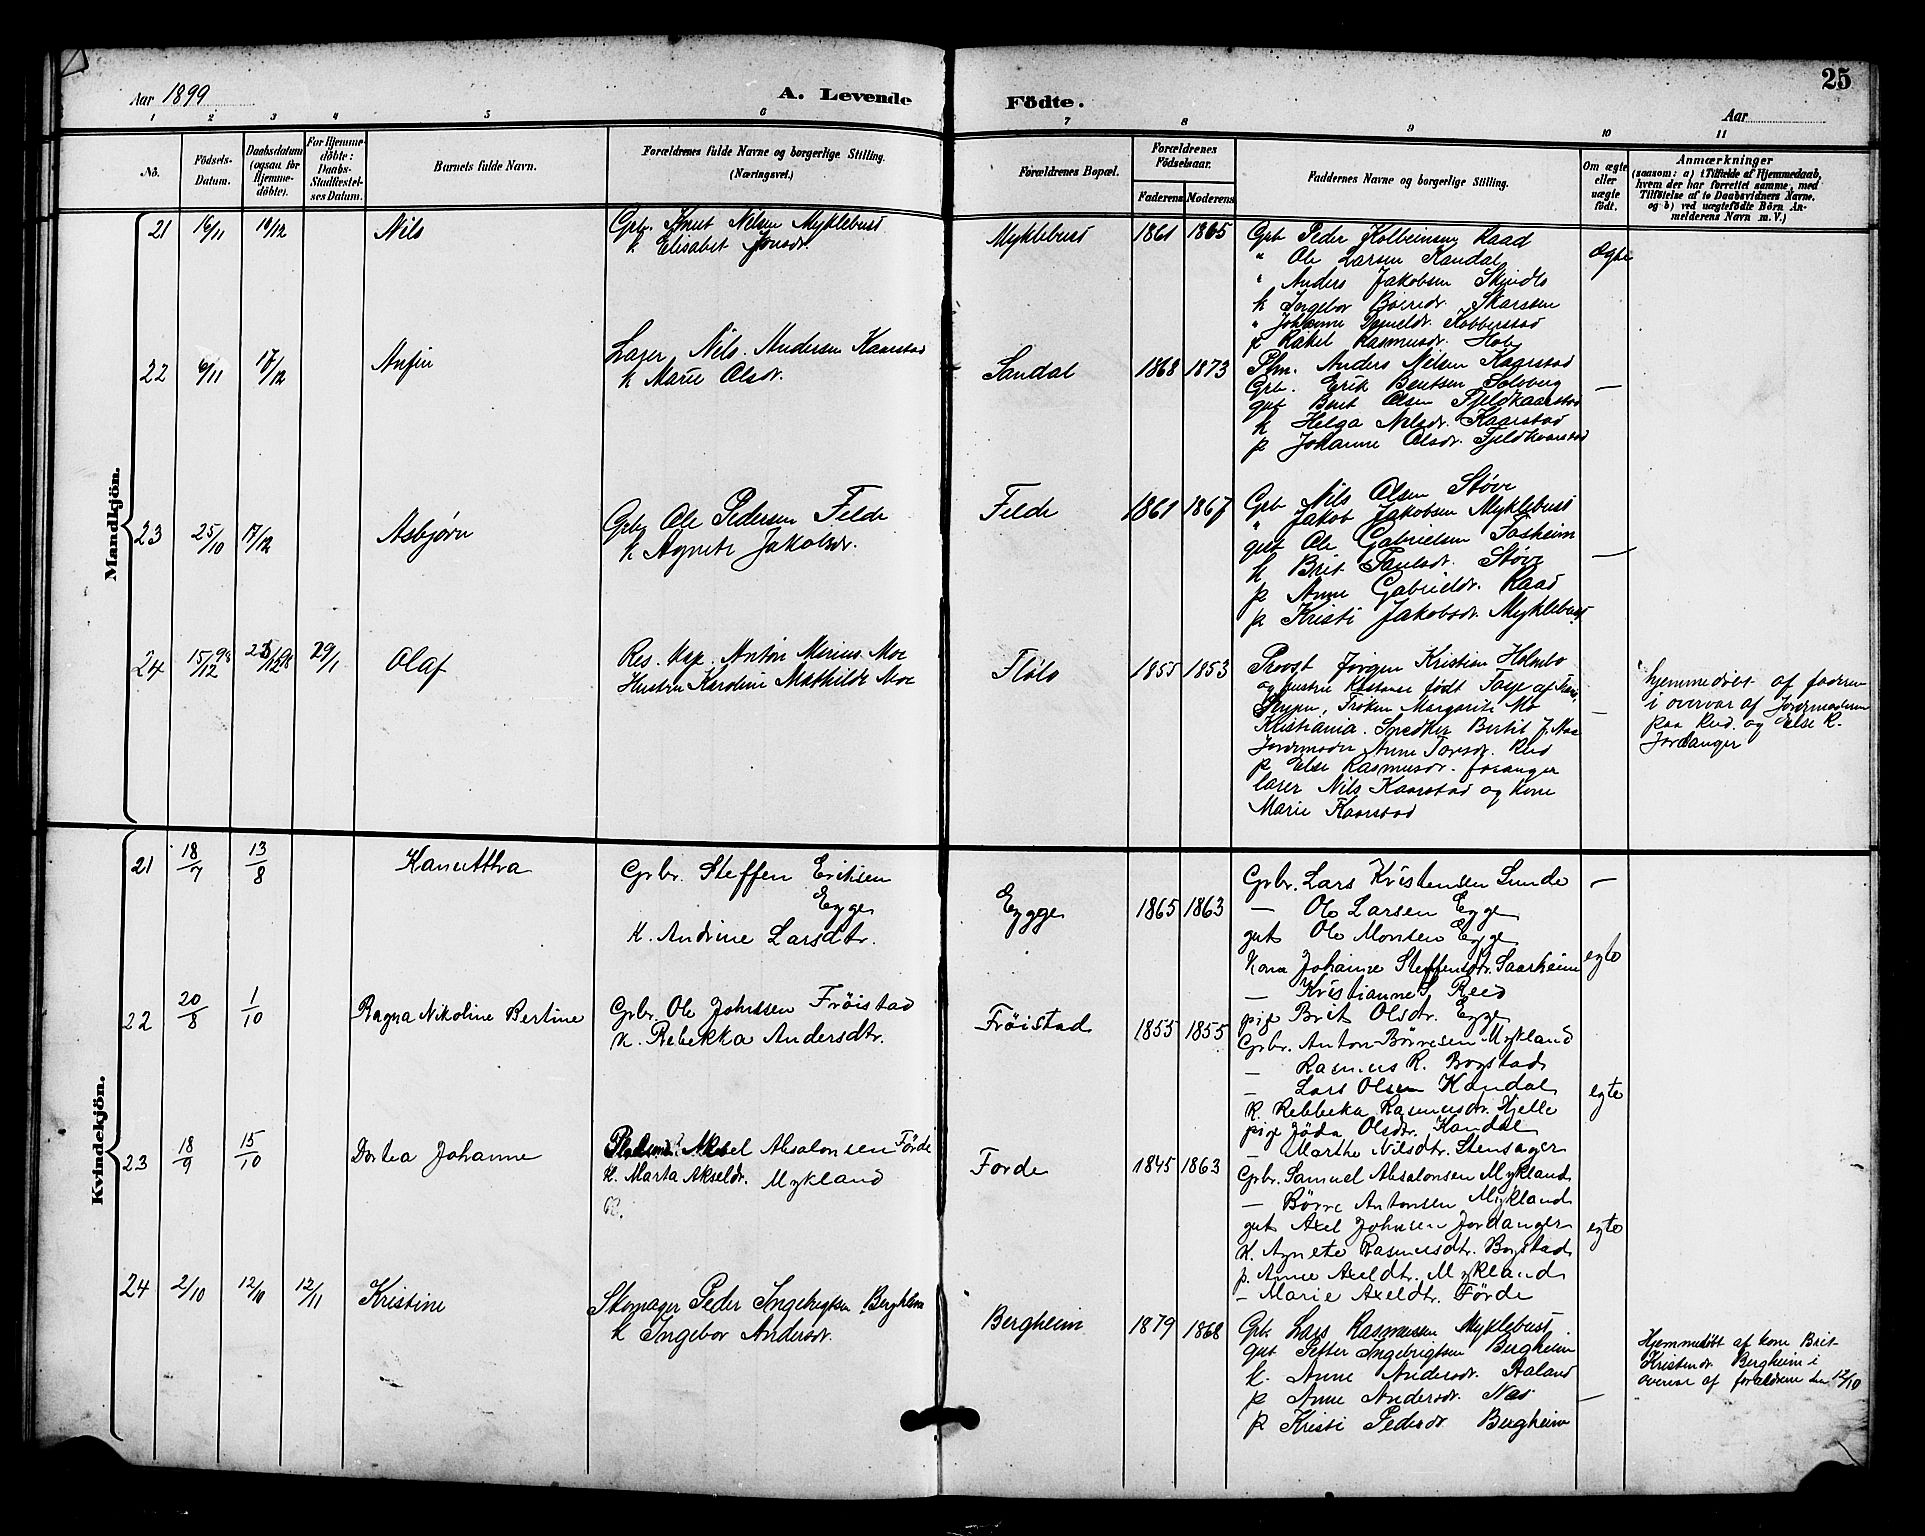 25
Aar 1899
A. Levende Födte.
Aar
1 2 3 4 5 6 7 8 9 10 11
No.
Födsels-
Datum.
Daabsdatum
(ogsaa for
Hjemme-
döbte).
For Hjemme-
döbte:
Daabs-
Stadfæstel-
ses Datum.
Barnets fulde Navn.
Forældrenes fulde Navne og borgerlige Stilling.
(Næringsvei.)
Forældrenes Bopæl.
Forældrenes
Födselsaar.
Faderens Moderens
Faddernes Navne og borgerlige Stilling.
Om ægte
eller
uægte
födt.
Anmærkninger
(saasom: a) i Tilfælde af Hjemmedaab,
hvem der har forrettet samme, med
Tilföielse af to Daabsvidners Navne.
og b) ved uægtefödte Börn An-
melderens Navn m. V.)
Mandkjön.
21 16/11 10/12 Nils
Grbr. Knut Nilsen Myklebust
k Elisabet Jonsdr.
Myklebust 1861 1865
Grb Peder Kolbeinsen Raad
" Ole Larsen Kandal
" Anders Jakobsen
k Ingebor Skarsten
" Johanne Danieldr.
p Rakel Rasmusdr.
Ægte
22 6/11 17/12 Anfin
Lærer Nils Andersen Kaarstad
k Marie Olsdr.
Sandal 1868 1873
Plm. Anders Nilsen Kaarstad
Grb. Erik Bentsen Solberg
gut Bent Olsen Fjeldkaarstad
k Helga Nilsdr. Kaarstad
p Johanne Olsdr. Fjeldkaarstad
—
23 25/10 17/12 Asbjørn
Grbr Ole Pedersen Felde
k Agnete Jakobsdr.
Felde 1861 1867
Grb Nils Olsen Støve
" Jakob Jakobsen Myklebust
gut Ole Gabrielsen Tasheim
k Brit Paulsdr. Støve
p Anne Gabrieldr. Raad
p Kristi Jakobsdr. Myklebust
—
24 15/12 98 29/1 Olaf
Res. Kap. Anton Marius Moe
Hustru Karoline Mathilde Moe
Fløto 1855 1853
Provst Jørgen Kristian Holmbo
og hustru født
Frøken Margarite Mo
Kristiania.
Jordmoder Anne Torsdr. Reed
p Else Rasmusdr.
lærer Nils Kaarstad og kone
Marie Kaarstad
—
hjemmedøbt af faderen
i overvær af Jordmoderen
paa Reed og Else R.
Jordanger
Kvindekjön.
21 18/7 13/8 Kanutthra
Grbr. Steffen Eriksen
Egge
k. Andrine Larsdtr.
Egge 1865 1863
Grbr. Lars Kristensen Sunde
— Ole Larsen Egge
gut Ole Monsen Egge
kona Johanne Steffensdtr. Saarheim
— Kristianne S. Reed
pige Brit Olsdtr. Egge
—
egte
22 20/8 1/10 Ragna Nikoline Bertine
Grbr. Ole Johnsen Fröistad
k. Rebekka Andersdtr.
Fröistad 1855 1855
Grbr. Anton Börresen Mykland
— Rasmus R. Bogstad
— Lars Olsen Kandal
k. Rebbeka Rasmusdtr. Hjelle
pige Jöda Olsdtr. Kandal
— Marthe Nilsdtr. Stensager
egte
23 18/9 15/10 Dortea Johanne
Aksel Absalonsen Förde
k. Marta Akseldr. Mykland
Forde 1845 1863
Grbr. Samuel Absalonsen Mykland
— Börre Antonsen Mykland
gut Axel Johnsen Jordanger
k. Agnete Rasmusdtr. Bogstad
p. Anne Axeldtr. Mykland
— Marie Axeldtr. Förde
egte
24 2/10 12/10 12/11 Kristine
Skomager Peder Ingebrigtsen Bergheim
k Ingebor Andersdr.
Bergheim 1879 1868
Grb. Lars Rasmussen Myklebust
gut Petter Ingebrigtsen Bergheim
k. Anne Andersdr. Aaland
p Anne Andersdr. Nes
p Kristi Pedersdr. Bergheim
—
Hjemmedøbt af kone Brit
Kristendr. Bergheim i
overvær af forældrene den 12/10